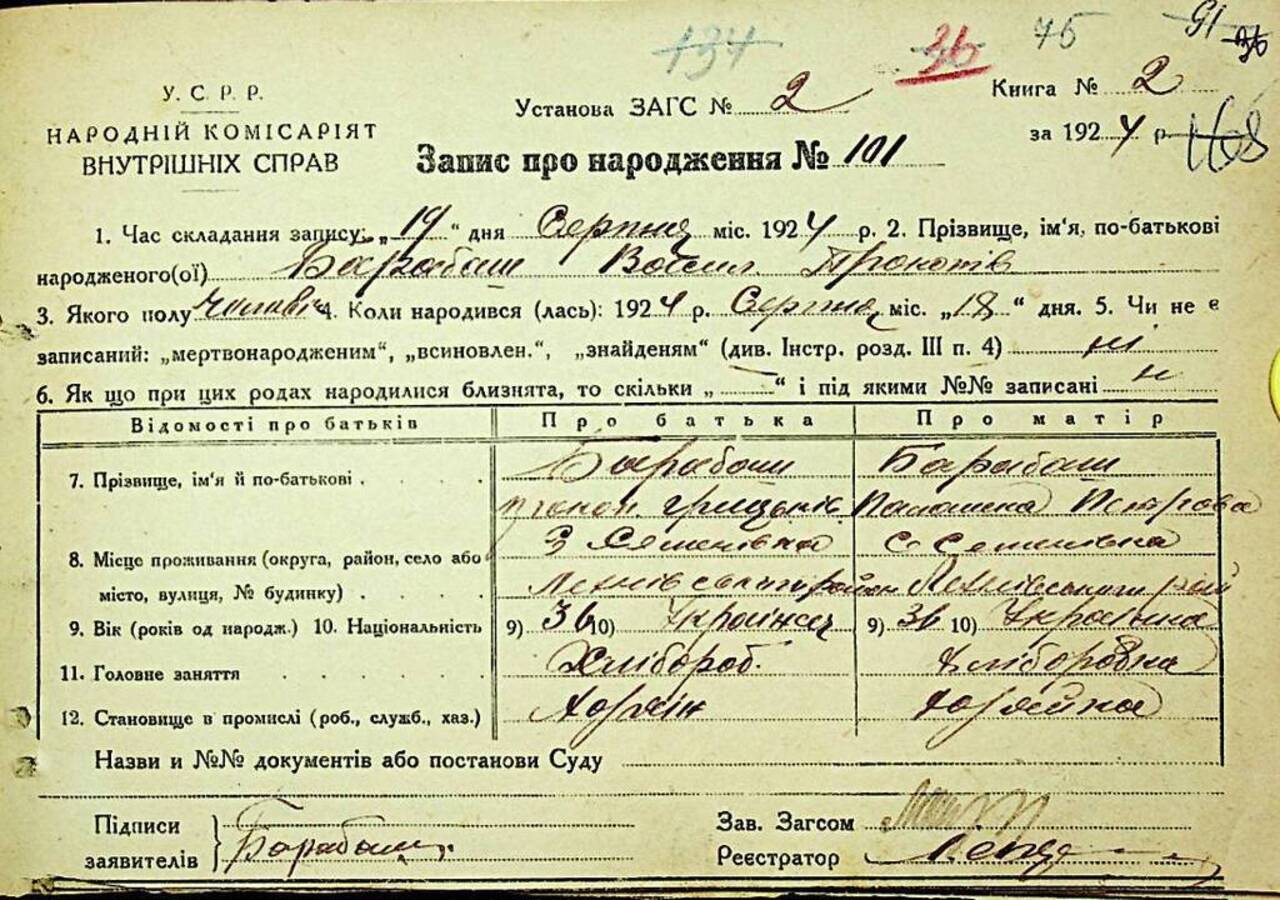 134 36 75 91 36
У. С. Р. Р.
НАРОДНІЙ КОМІСАРІЯТ
ВНУТРІШНІХ СПРАВ
Установа ЗАГС № 2
Книга № 2
за 1924 р. 168
Запис про народження № 101
1. Час складання запису: „19“ дня Серпня міс. 1924 р. 2. Прізвище, ім'я, по-батькові
народженого(ої) Барабаш Васил. Прокопів
3. Якого полу Чоловіч 4. Коли народився (лась): 1924 р. Серпня міс. „18“ дня. 5. Чи не є
записаний: „мертвонародженим“, „всиновлен.“, „знайденям“ (див. Інстр. розд. III п. 4) ні
6. Як що при цих родах народилися близнята, то скільки „—“ і під якими №№ записані н
Відомості про батьків Про батька Про матір
7. Прізвище, ім'я й по-батькові Барабаш Барабаш
Прокоп. Грицьків Палашка Петрова
8. Місце проживання (округа, район, село або З Семенівка С. Семенівка
місто, вулиця, № будинку) район
9. Вік (років од народж.) 10. Національність 9) 36 10) Українец 9) 36 10) Українка
11. Головне заняття Хлібороб. Хліборобка
12. Становище в промислі (роб., служб., хаз.) Хозяїн Хозяйка
Назви и №№ документів або постанови Суду
Підписи
заявителів Барабаш.
Зав. Загсом
Реєстратор